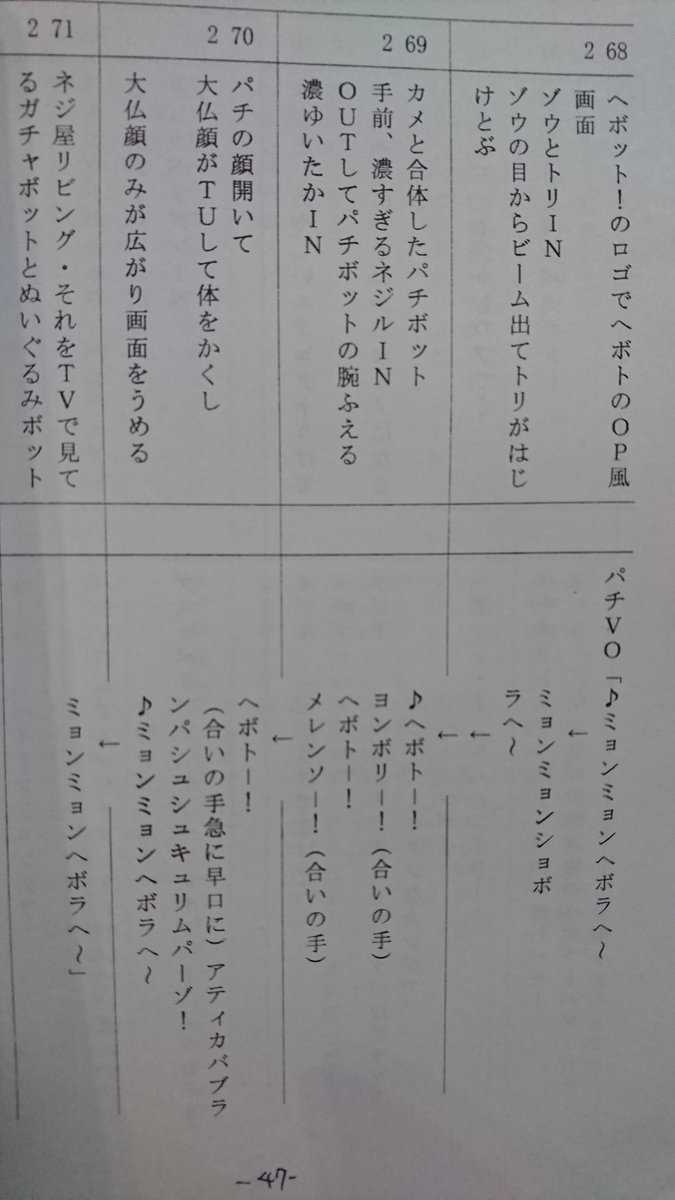 268
ヘボット！のロゴでヘボトのOP風
画面
ゾウとトリIN
ゾウの目からビーム出てトリがはじ
けとぶ
パチVO「♪ミョンミョンヘボラヘ～
←
ミョンミョンショボ
ラヘ～
←
←
269
カメと合体したパチボット
手前、濃すぎるネジルIN
OUTしてパチボットの腕ふえる
濃ゆいたかIN
♪ヘボトー！
ヨンボリー！（合いの手）
ヘボトー！
メレンソー！（合いの手）
←
270
パチの顔開いて
大仏顔がTUして体をかくし
大仏顔のみが広がり画面をうめる
ヘボトー！
（合いの手急に早口に）アティカバブラ
ンパシュシュキュリムパーゾ！
♪ミョンミョンヘボラヘ～
←
271
ネジ屋リビング・それをTVで見て
るガチャボットとぬいぐるみボット
ミョンミョンヘボラヘ～」
-47-